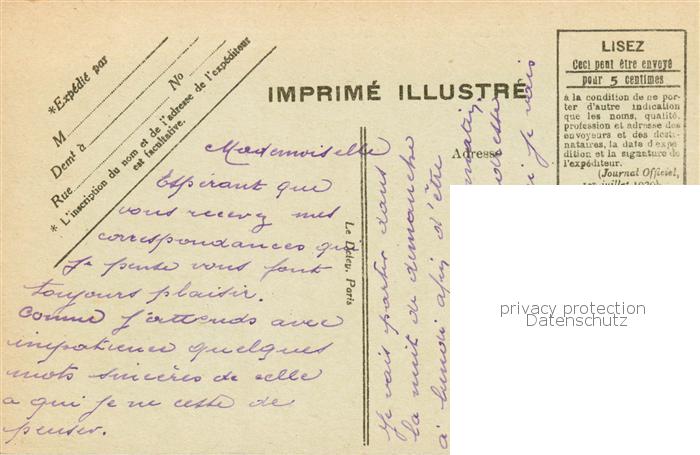 *Expédié par
M
No
Demt à
Rue
* L'inscription du nom et de l'adresse de l'expéditeur
est facultative.
IMPRIMÉ ILLUSTRÉ
LISEZ
Ceci peut être envoyé
pour 5 centimes
à la condition de ne por-
ter d'autre indication
que les noms, qualité,
profession et adresse des
envoyeurs et des desti-
nataires, la date d'expé-
dition et la signature de
l'expéditeur.
(Journal Officiel,
Adresse
Le Deley, Paris
Mademoiselle
Espérant que
vous recevez mes
correspondances que
je pense vous font
toujours plaisir.
Comme j'attends avec
impatience quelques
mots sincères de celle
a qui je ne cesse de
penser.
Je vais partir dans
la nuit de dimanche
à lundi afin d'être
matin,
adresse
je vais
privacy protection
Datenschutz